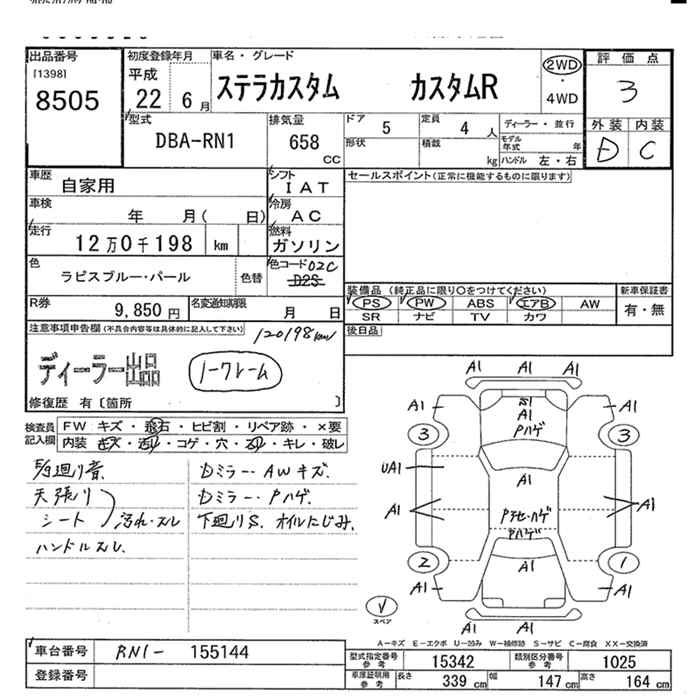 出品番号
[1398]
8505
初度登録年月
平成
22 6 月
車名・グレード
ステラカスタム カスタムR
2WD
・
4WD
評価点
3
外装 内装
D C
型式
DBA-RN1
排気量
658
CC
ドア 5
定員 4 人
形状
積載 kg
ディーラー・並行
モデル年式 年
ハンドル 左・右
車歴
自家用
シフト
IAT
セールスポイント(正常に機能するものに限ります)
車検
年 月( 日)
冷房
AC
走行
12万0千198 km
燃料
ガソリン
色
ラピスブルー・パール
色替
色コード 02C
D2S
装備品 (純正品に限り○をつけてください)
PS PW ABS エアB AW
SR ナビ TV カワ
新車保証書
有・無
R券
9,850 円
名変通知期限
月 日
後日品
注意事項申告欄(不具合内容等は具体的に記入して下さい)
120198km
ディーラー出品
ノークレーム
修復歴 有〔箇所 〕
検査員
記入欄
FW キズ・飛石・ヒビ割・リペア跡・×要
内装 キズ・汚れ・コゲ・穴・スレ・キレ・破レ
天張り
シート 汚れ・スレ
ハンドルスレ
Dミラー・AWキズ.
Dミラー・Pハゲ.
下廻りS. オイルにじみ.
A1
A1 A1
A1 A1
A1
Pハゲ
3 3
UA1
A1
A1 A1
Pハゲ
2 1
A1
A1 A1
A1 A1
A1
スペア
A-キズ E-エクボ U-凹み W-補修跡 S-サビ C-腐食 XX-交換済
車台番号
RN1- 155144
登録番号
型式指定番号
参考
15342
類別区分番号
参考
1025
車庫証明用
参考
長さ 339 cm
幅 147 cm
高さ 164 cm